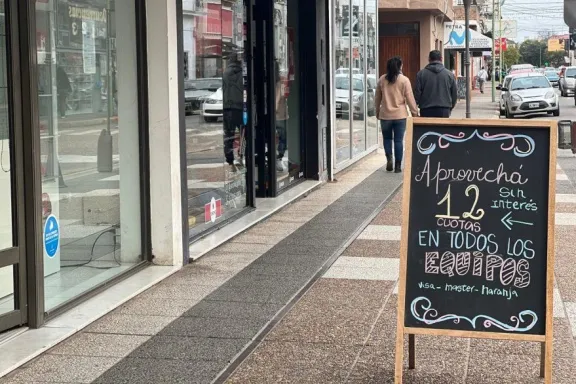 Aprovechá
12 Sin
interés
CUOTAS
EN TODOS LOS
EQUIPOS
visa - master - Naranja